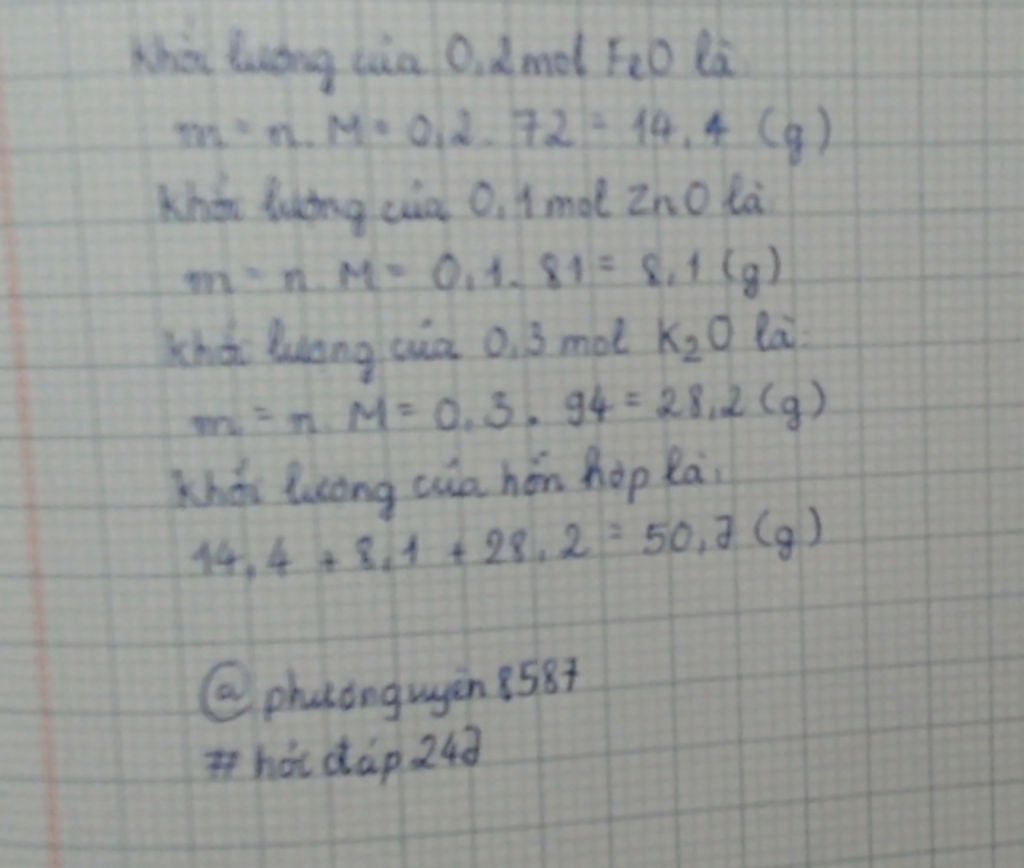 Khối lượng của 0,2 mol FeO là
m = n. M = 0,2. 72 = 14,4 (g)
Khối lượng của 0,1 mol ZnO là
m = n. M = 0,1. 81 = 8,1 (g)
Khối lượng của 0,3 mol K₂O là:
m = n. M = 0,3. 94 = 28,2 (g)
Khối lượng của hỗn hợp là:
14,4 + 8,1 + 28,2 = 50,7 (g)
@phuonguyên8587
# hỏi đáp 247